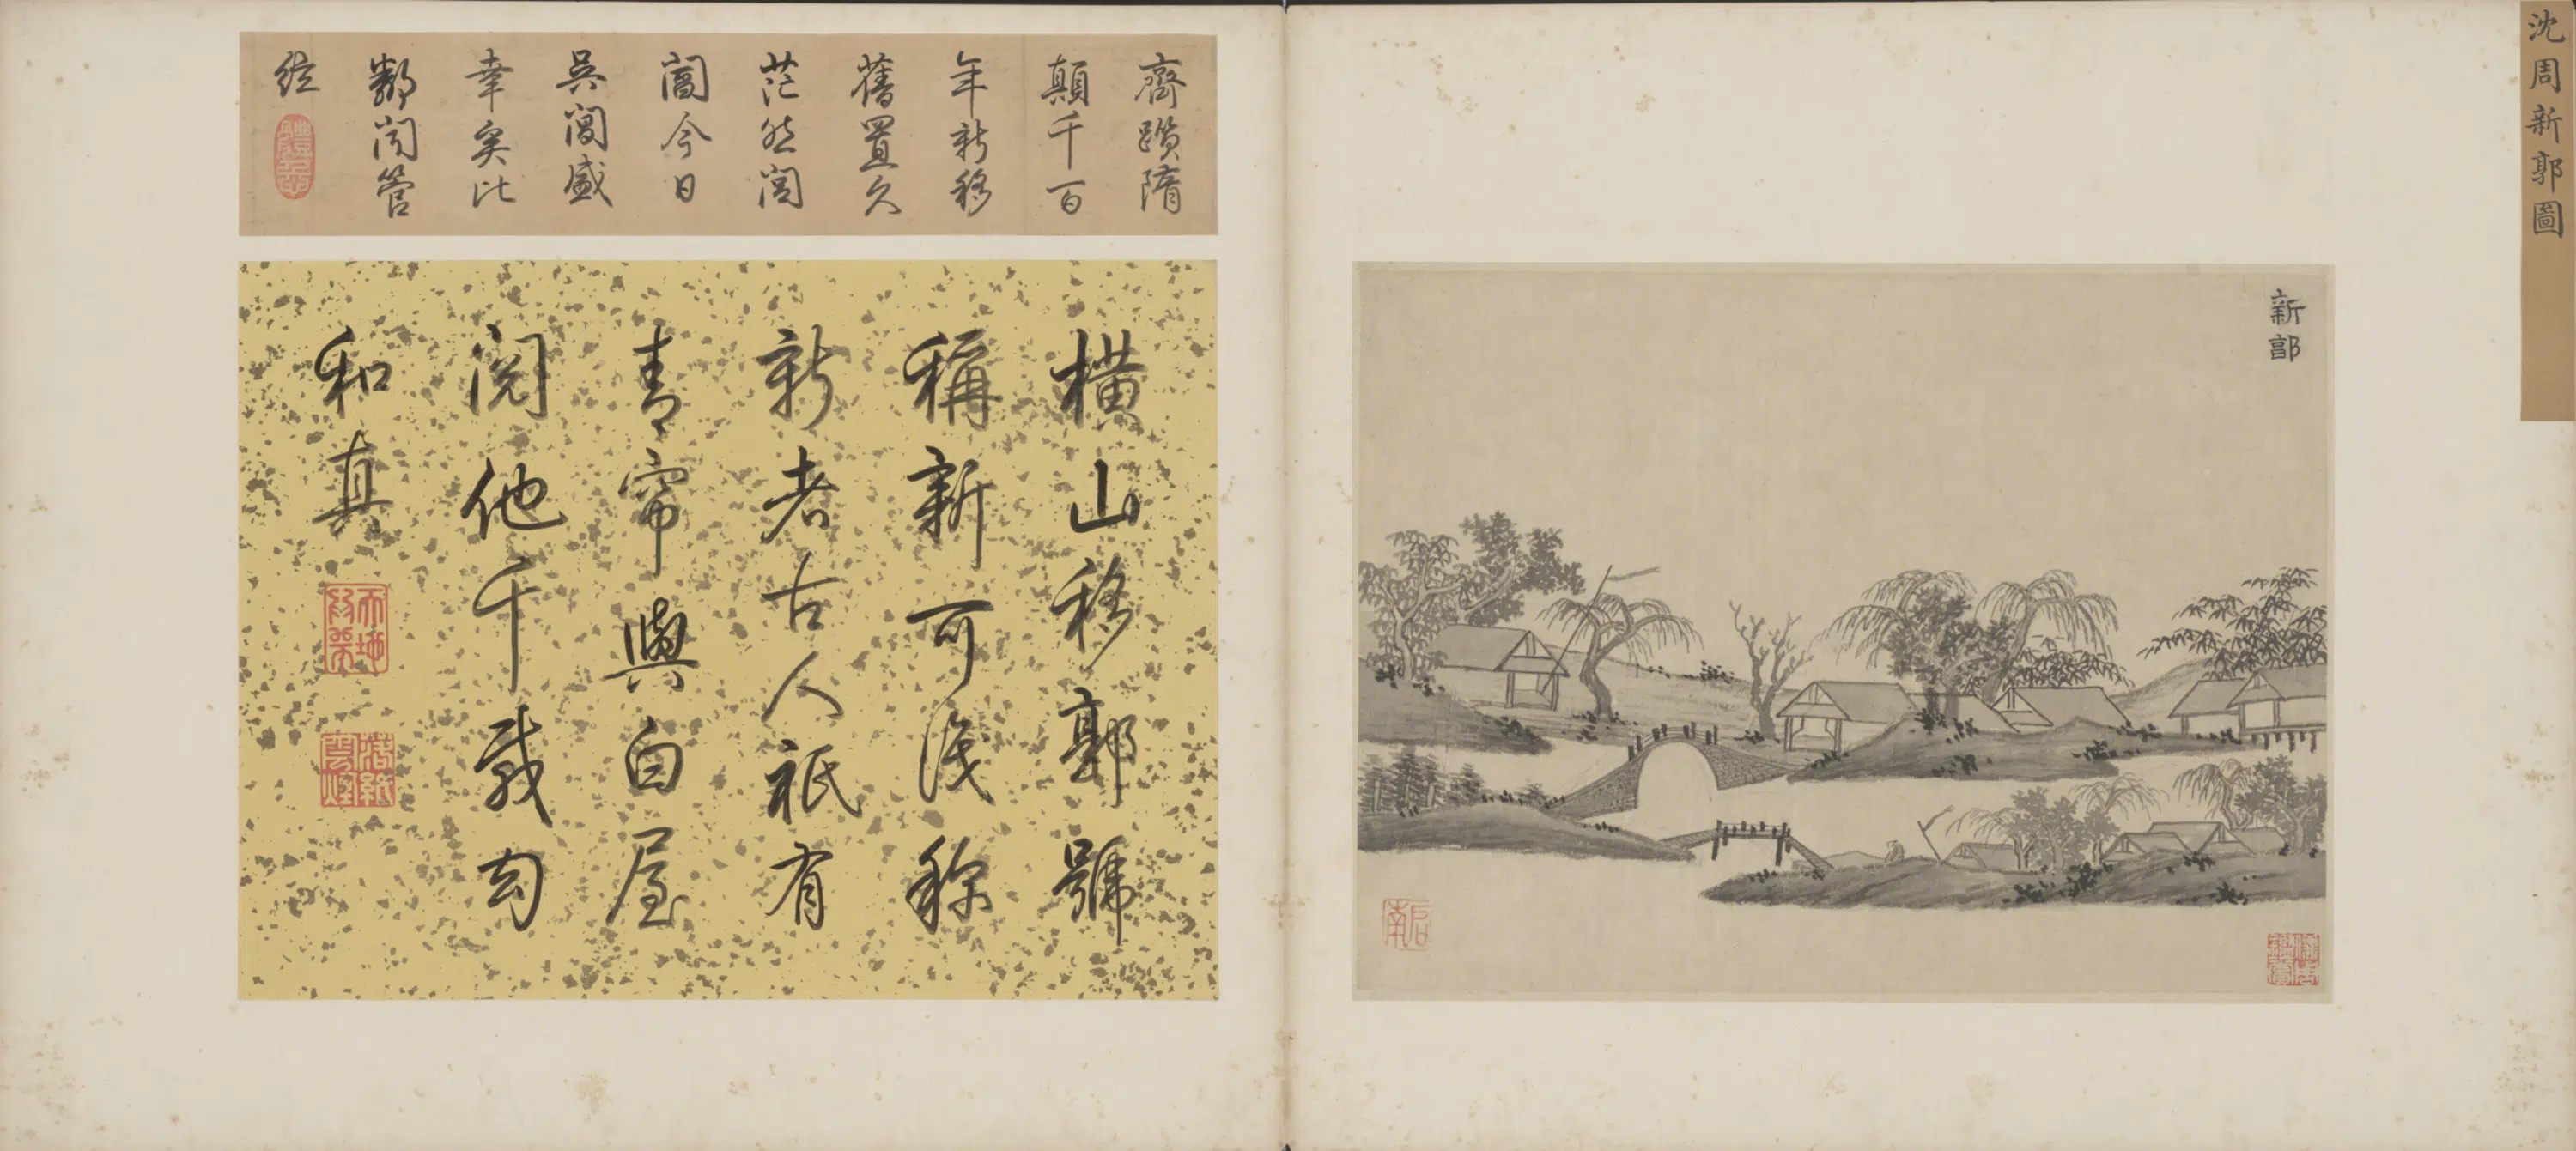 沈周新郭圖
新郭
齊躓隋
顛千百
年新移
舊置久
茫然閭
閻今日
吳閶盛
幸矣比
鄰聞管
絃
橫山移郭號
稱新可復称
新者古人祇有
青帘與白屋
閱他千載幻
和真